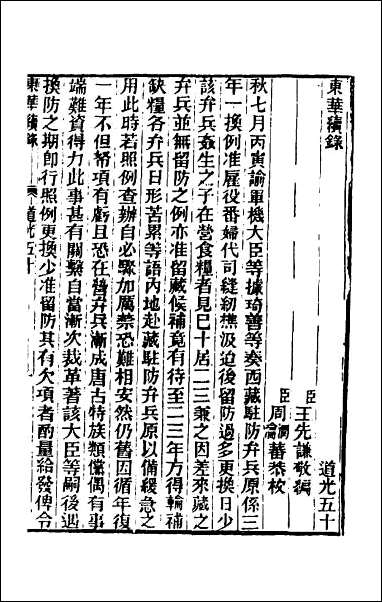 東華續錄
道光五十
臣王先謙敬編
臣周潤蕃恭校
周瀹蕃
秋七月丙寅諭軍機大臣等據琦善等奏西藏駐防弁兵原係三
年一換例准雇役番婦代司縫紉樵汲迨後留防過多更換日少
該弁兵姦生之子在營食糧者見已十居二三兼之因差來藏之
弁兵並無留防之例亦准留藏候補竟有待至二三年方得輪補
缺糧各弁兵日形苦累等語內地赴藏駐防弁兵原以備緩急之
用此時若照例查辦自必驟加厲禁恐難相安然仍舊因循年復
一年不但帑項有虧且恐在營弁兵漸成唐古特族類儻偶有事
端難資得力此事甚有關繫自當漸次裁革著該大臣等嗣後遇
換防之期即行照例更換少准留防其有欠項者酌量給發俾令
東華續錄
道光五十